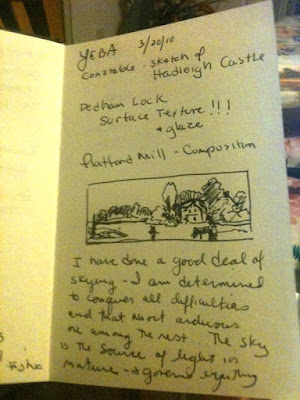 YCBA 3/20/10
Constable - sketch of
Hadleigh Castle
Dedham Lock
Surface Texture!!!
+ glaze
Flatford Mill - Composition
I have done a good deal of
skying - I am determined
to conquer all difficulties
and that most arduous
one among the rest... The sky
is the source of light in
nature - + governs everything